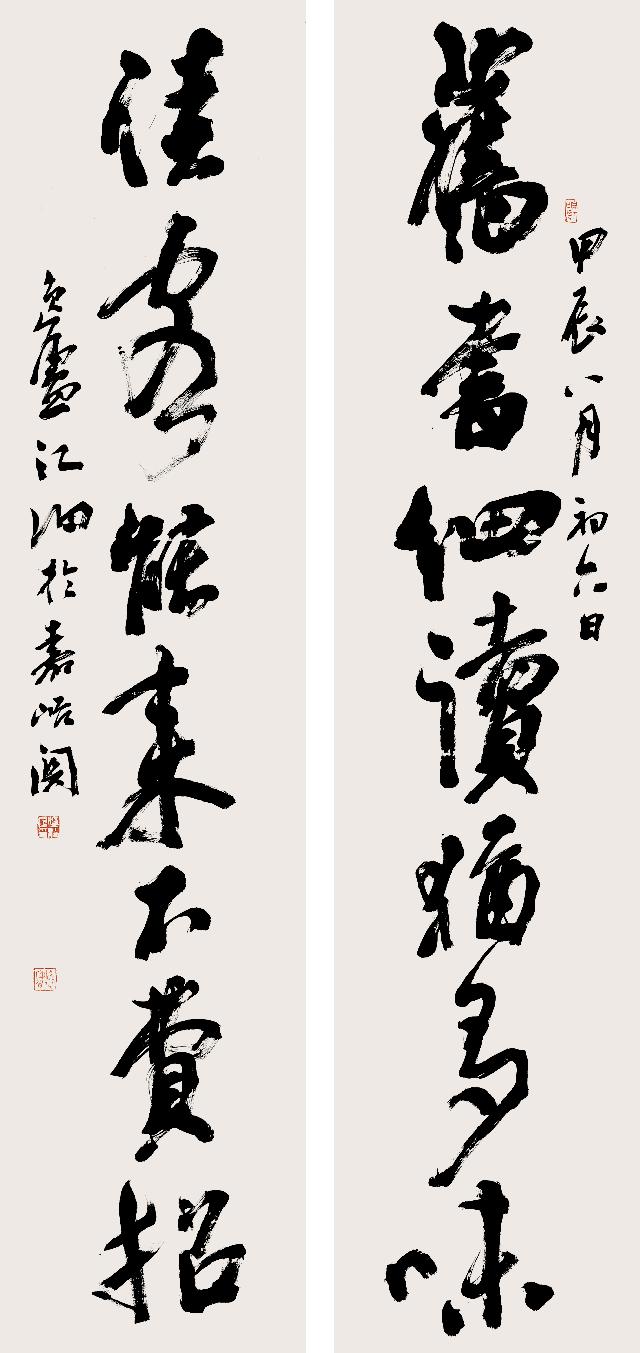 甲辰八月初六日
舊書細讀猶多味
佳客能來不費招
盧江
於嘉峪關